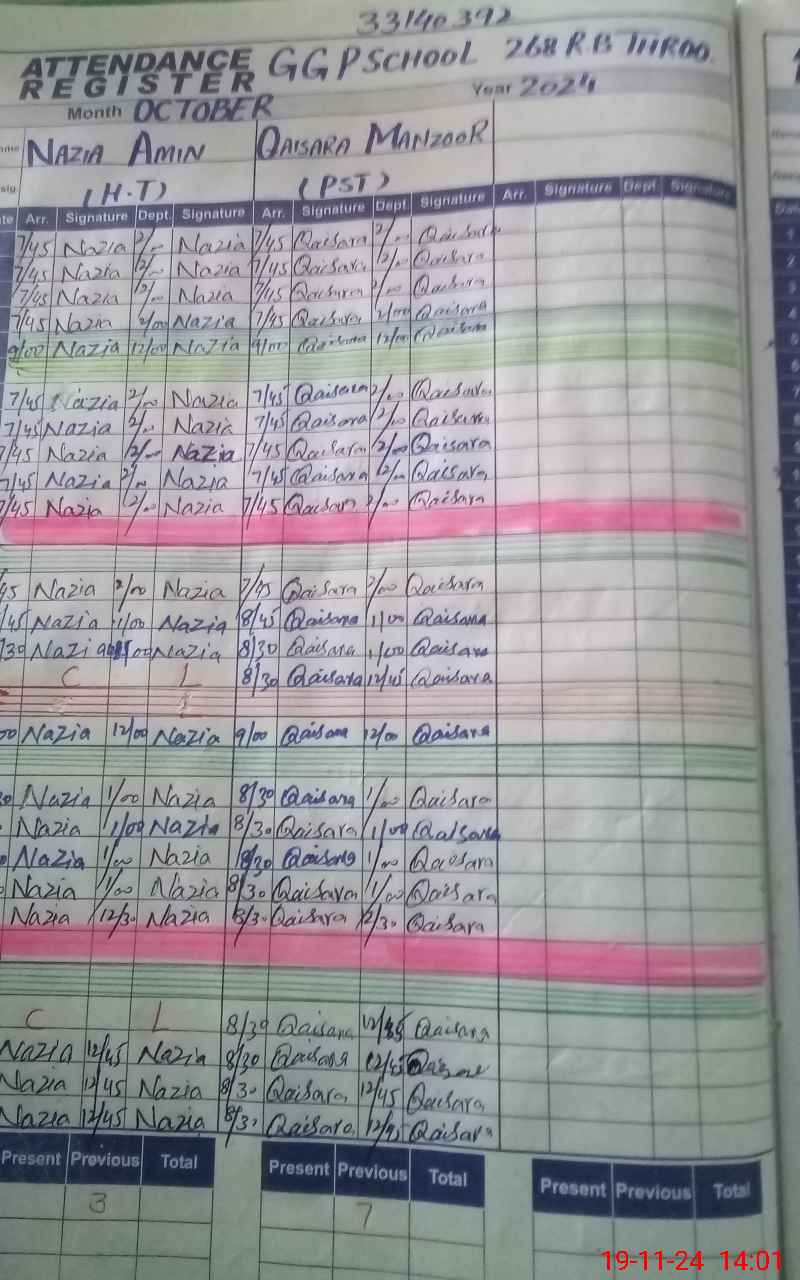 33140392
ATTENDANCE REGISTER GGPSCHOOL 268 R.B THROO.
Month OCTOBER Year 2024
NAZIA AMIN QAISARA MANZOOR
(H.T) (PST)
Arr. Signature Dept. Signature Arr. Signature Dept. Signature Arr. Signature Dept. Signature
7/45 Nazia 2/00 Nazia 7/45 Qaisara 2/00 Qaisara
7/45 Nazia Nazia 7/45 Qaisara Qaisara
7/45 Nazia Nazia 7/45 Qaisara 2/00 Qaisara
7/45 Nazia 2/00 Nazia 7/45 Qaisara 2/00 Qaisara
9/00 Nazia 12/00 Nazia 9/00 Qaisara 12/00 Qaisara
7/45 Nazia 2/00 Nazia 7/45 Qaisara 2/00 Qaisara
7/45 Nazia 2/00 Nazia 7/45 Qaisara 2/00 Qaisara
7/45 Nazia 2/00 Nazia 7/45 Qaisara 2/00 Qaisara
7/45 Nazia 2/00 Nazia 7/45 Qaisara 2/00 Qaisara
7/45 Nazia 2/00 Nazia 7/45 Qaisara 2/00 Qaisara
45 Nazia 2/00 Nazia 7/45 Qaisara 2/00 Qaisara
/45 Nazia 1/00 Nazia 8/45 Qaisara 1/00 Qaisara
/30 Nazia Nazia 8/30 Qaisara 1/00 Qaisara
C L 8/30 Qaisara 12/45 Qaisara
00 Nazia 12/00 Nazia 9/00 Qaisara 12/00 Qaisara
Nazia 1/00 Nazia 8/30 Qaisara 1/00 Qaisara
Nazia 1/00 Nazia 8/30 Qaisara 1/00 Qaisara
Nazia 1/00 Nazia 8/30 Qaisara 1/00 Qaisara
Nazia 1/00 Nazia 8/30 Qaisara 1/00 Qaisara
Nazia 12/30 Nazia 8/30 Qaisara 12/30 Qaisara
C L 8/30 Qaisara 12/45 Qaisara
Nazia 12/45 Nazia 8/30 Qaisara 12/45 Qaisara
Nazia 12/45 Nazia 8/30 Qaisara 12/45 Qaisara
Nazia 12/45 Nazia 8/30 Qaisara 12/45 Qaisara
Present Previous Total Present Previous Total Present Previous Total
3 7
19-11-24 14:01